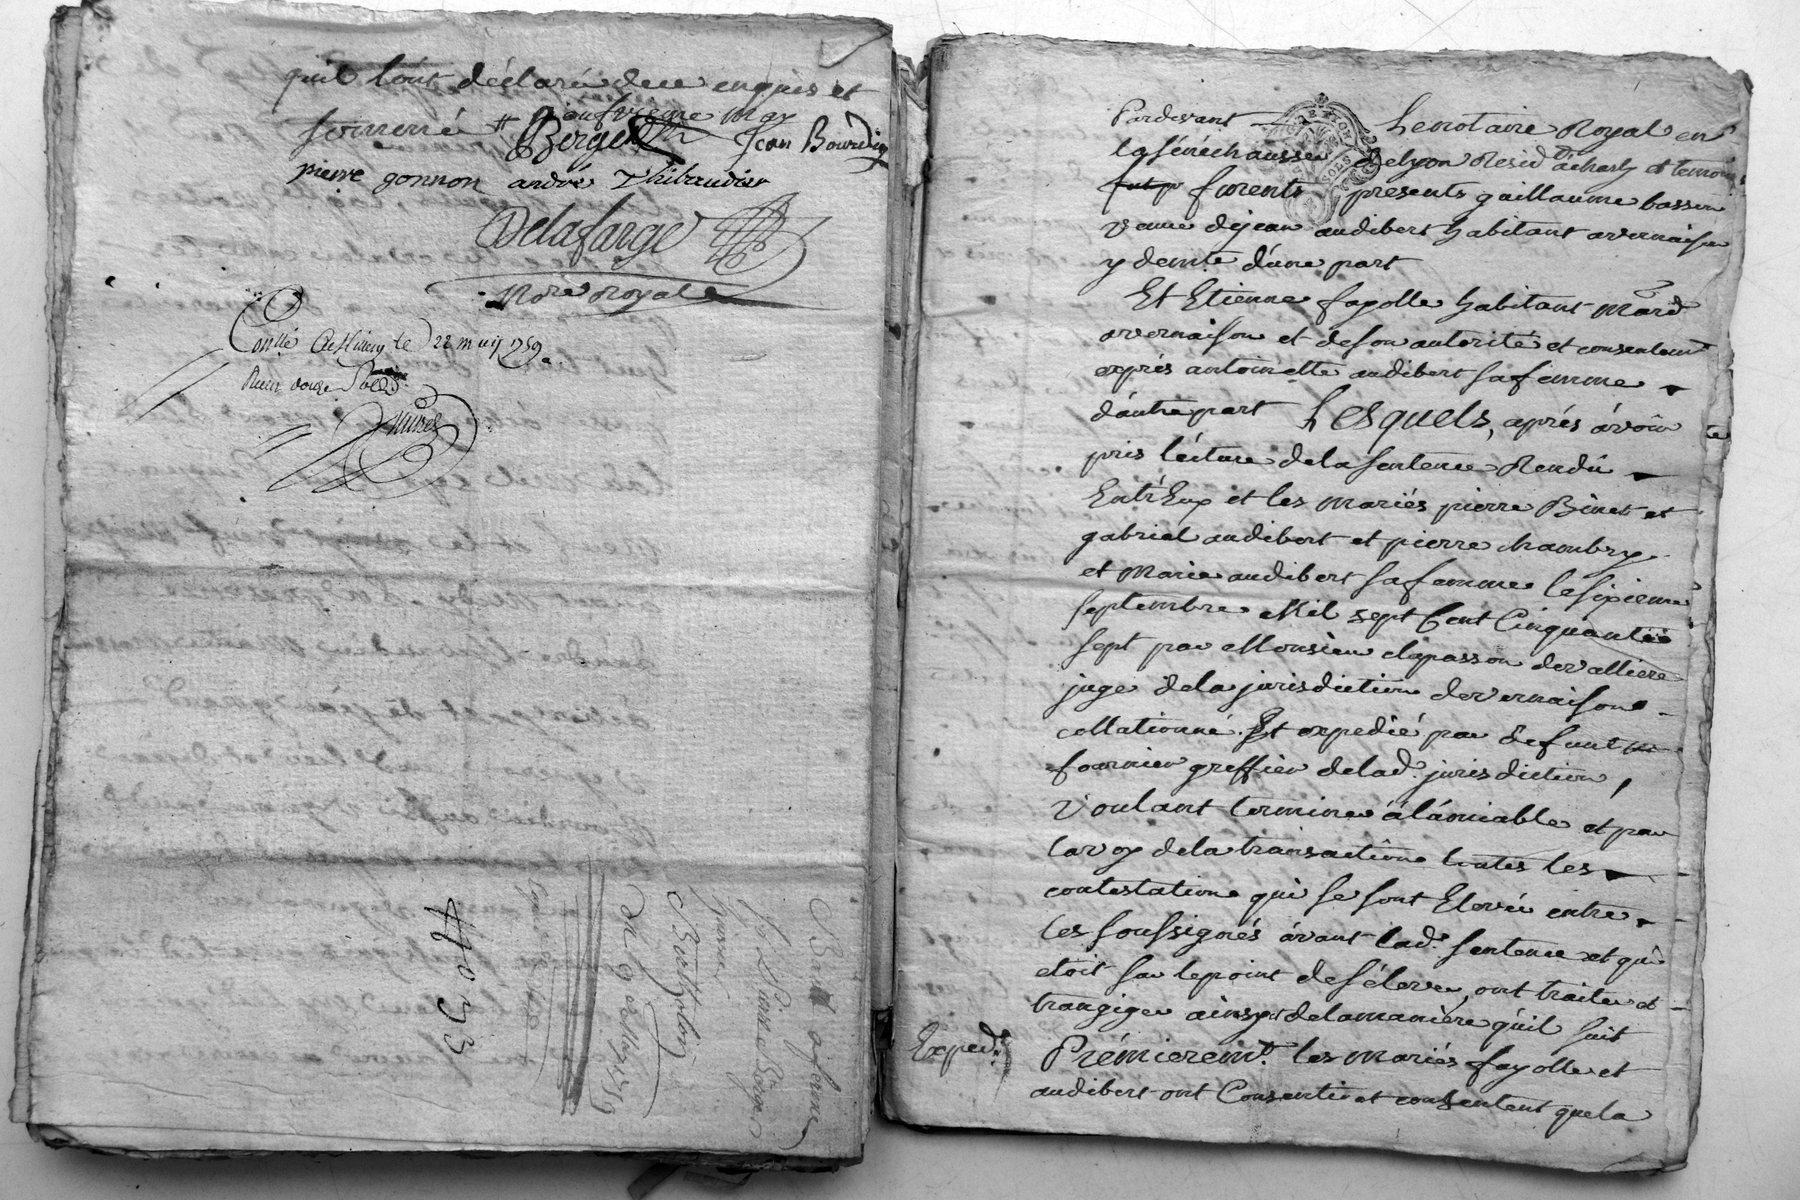 qu'il ont déclaré de ce enquis et
sommé # # onzvieme may
Berger Jean Bourdin
pierre gonnon andré Thibaudier
Delafarge
Nore Royal
Conllé le 22 may 1759
Reçu douze sols
Bail a ferme
Sr Pierre Berger
Berthelon
du 9e May 1759
Pardevant Le notaire Royal en
la sénéchaussée de lyon Resid. à charly et temoins
furent presents guillaume basson
veuve de jean audibert habitant a vernaison
y demte d'une part
Et Etienne fayolle habitant mard
a vernaison et de son autorité et consentemt
exprés antoinette audibert sa femme
d'autre part Lesquels, aprés ávoir
pris lécture de la sentence Rendu
Entr'Eux et les mariés pierre Binet et
gabriel audibert et pierre chambry
et Marie audibert sa femme le sixieme
septembre Mil sept Cent Cinquante
sept par Monsieur clapasson de valliere
juge de la jurisdiction de vernaison
collationné Et expedié par defunt
fournier greffier de lad. jurisdiction,
Voulant terminer à l'ámiable et par
la voy de la transaction toutes les
contestations qui se sont Elevée entre
les soussignés ávant lad. sentence et qui
etoit sur le point de s'élever, ont traité et
transiger áinsy et de la maniére qu'il suit
Prémieremt. les mariés fayolle et
audibert ont Consentit et consentent que la
Exped.